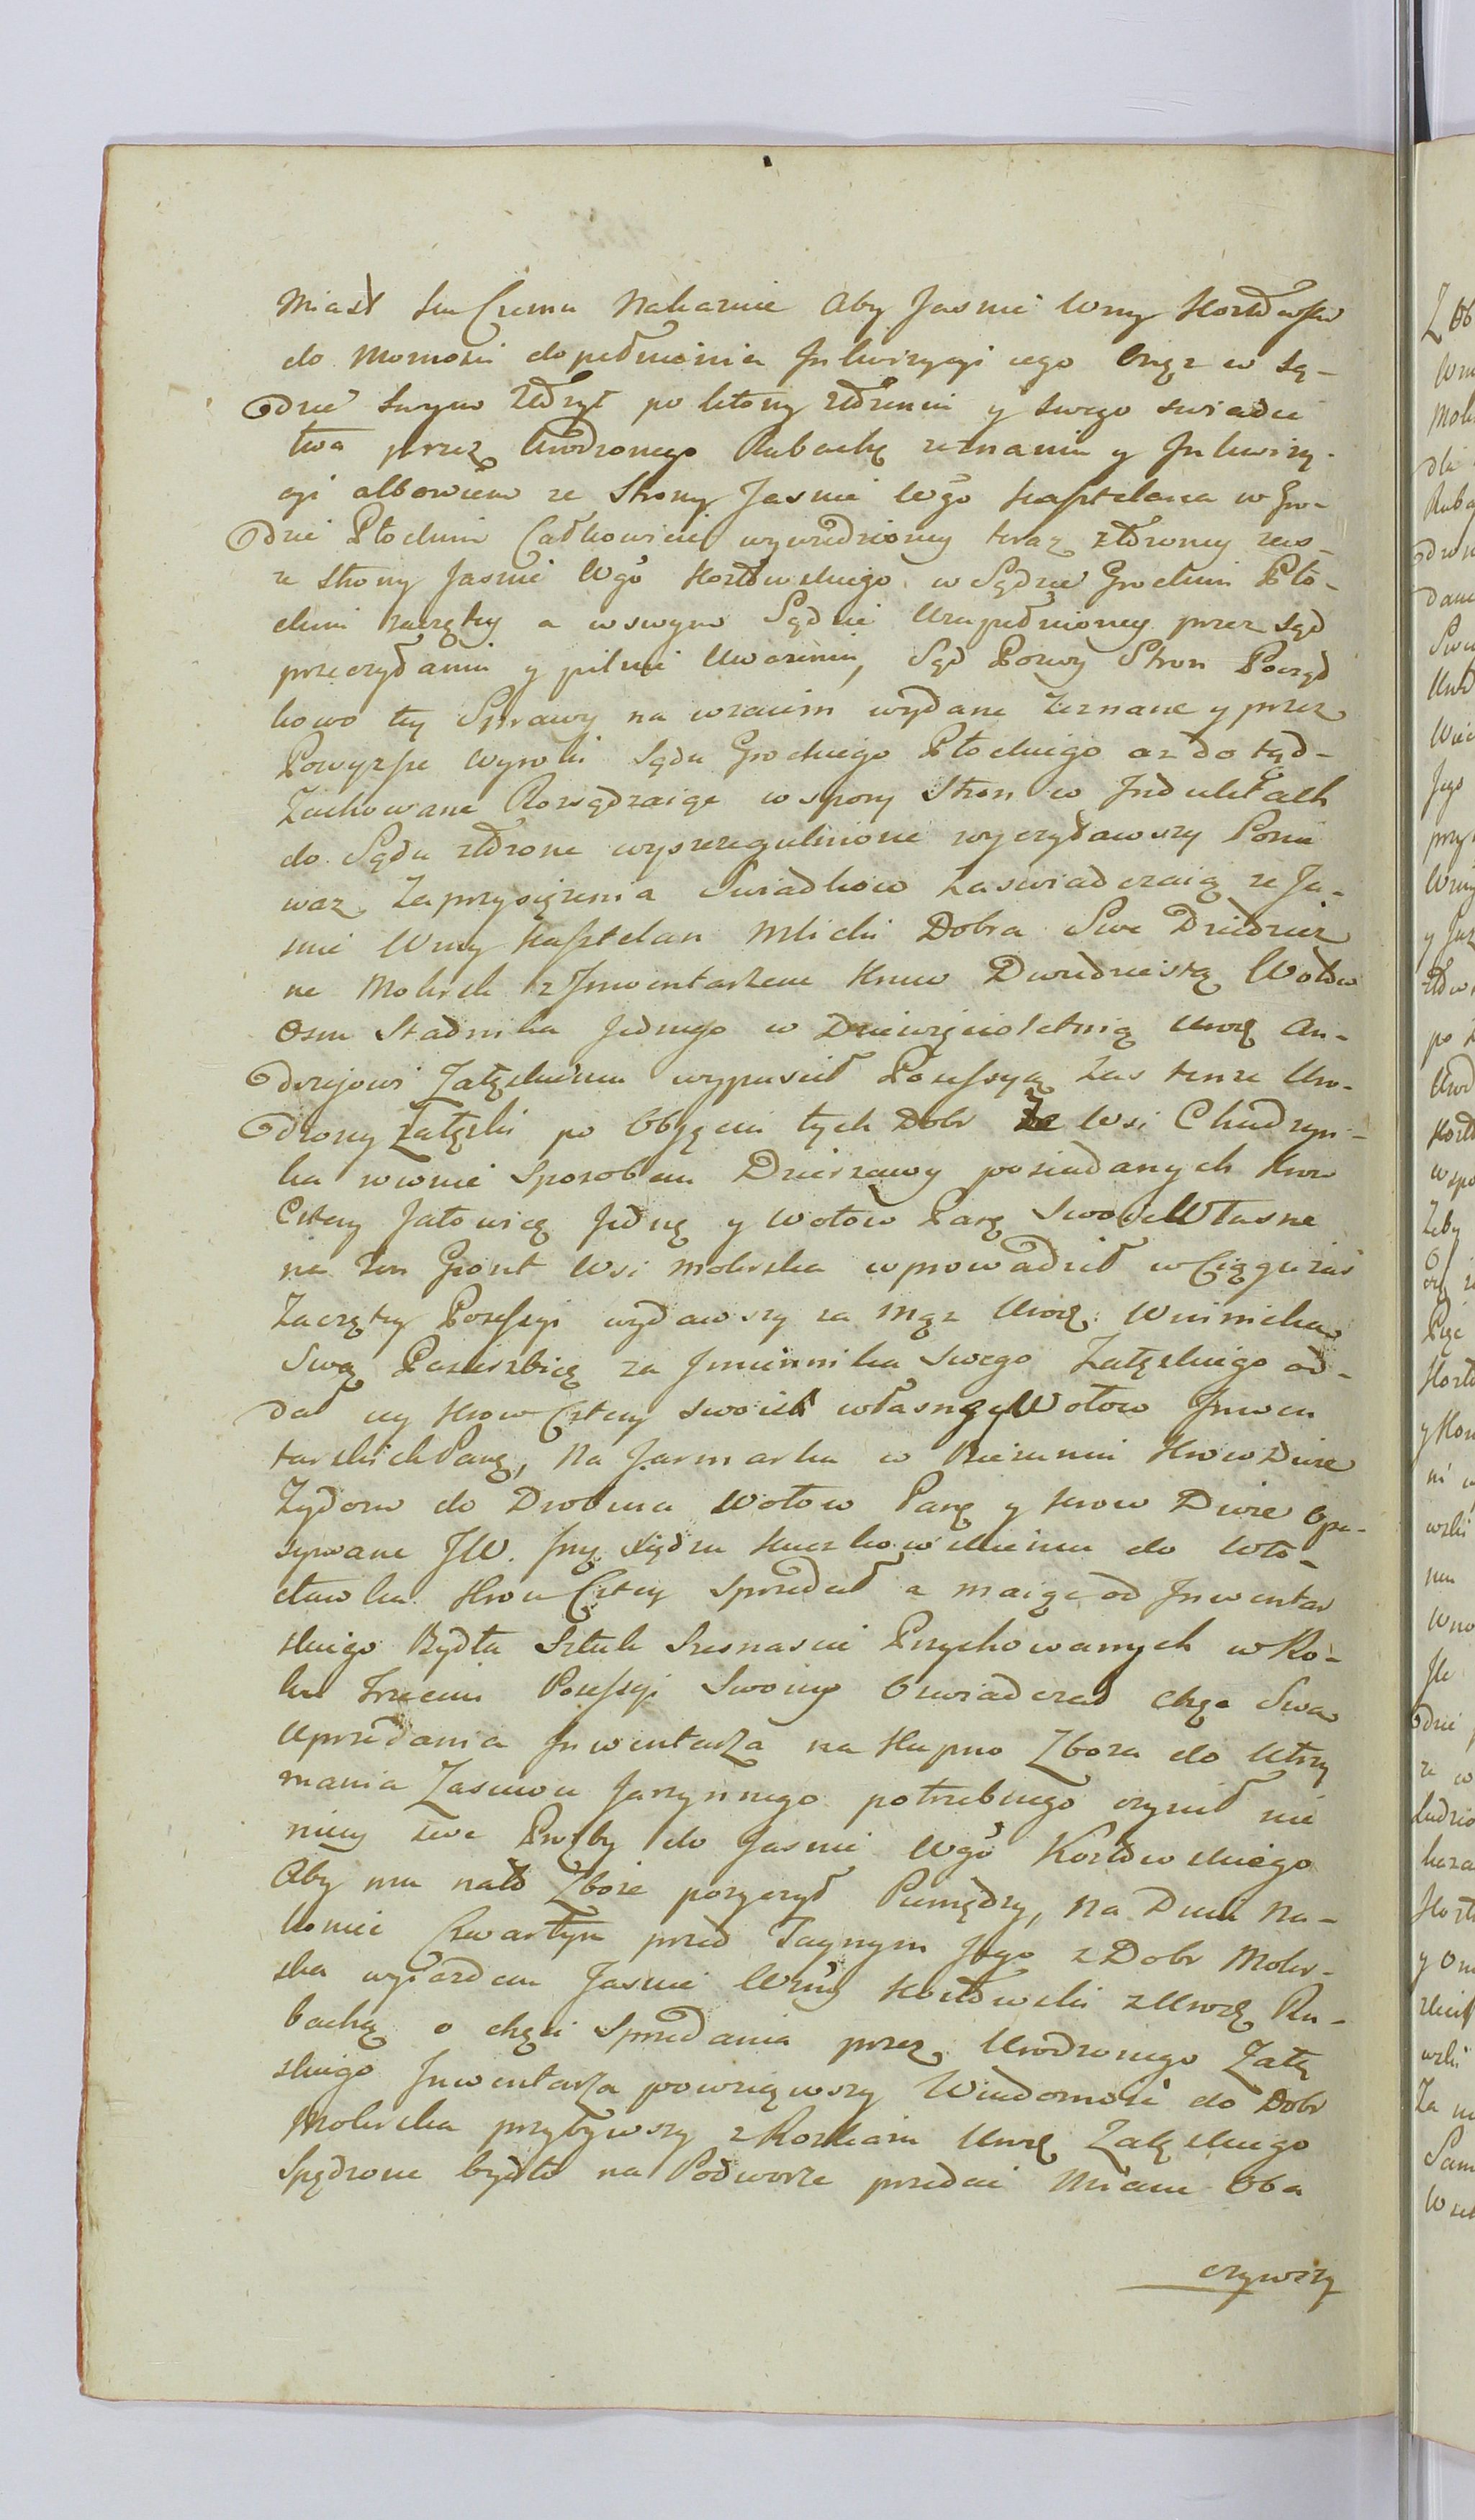 Miast ku Czemu Nakazuie Aby Jasnie Wny Kozłowski
do Mocnosci dopełnienia Inkwizycyi iego Ciąg w Są-
dzie swym złożył po ktorey złożeniu y swego swiadec
twa przez Urodzonego Rubachę zeznaniu y Inkwizy-
cyi albowiem ze Strony Jasnie Wgo Kasztelana w Gro-
dzie Płockim Całkowicie wywiedzioney teraz złożoney zas
ze Strony Jasnie Wgo Kozłowskiego w Sądzie Grodzkim Pło-
ckim zaczętey a w swym Sądzie Uzupełnioney przez Sąd
przeczytaniu y pilnie Uwazeniu, Sąd Pozwy Stron Porząd
kowo tey Sprawy na wzaiem wydane Zeznane y przez
Powyższe Wyroki Sądu Grodzkiego Płockiego az do tąd
Zachowane Rozsądzaiąc w spory Stron w Induktach
do Sądu złożone wyszczegulnione wyczytawszy Ponie
waz Zaprzysiężenia Swiadkow zaswiadczaią ze Ja-
snie Wny Kasztelan Mlicki Dobra Swe Dziedzicz
ne Mokrsk z Inwentarzem Krow Dwudziestą Wołow
Osm Stadnika Jednego w Dziewięcioletnią Urodz An-
drzejowi Załęskiemu wypuscił Possessyą zas tenze Uro-
dzony Załęski po Objęciu tych Dobr Ze Wsi Chudzyn-
ka rownie Sposobem Dzierzawy posiadanych Krow
Cztery Jałowicę Jednę y Wołow Parę Swoie Własne
na ten Gront Wsi Mokrska wprowadził w Ciągu zas
Zaczętey Possessyi wydawszy za mąz Urodz. Winnicka
Swą Pasierzbicę za Imiennika Swego Załęskiego od-
dał iey Krow Cztery swoich własnych Wołow Inwen
tarskich Parę, Na Jarmarku w Biezuniu Krow Dwie
Zydom do Drobina Wołow Parę y Krow Dwie Opa-
sywane JW. Jmę Xiędzu Kuczkowskiemu do Wło-
cławka Krow Cztery sprzedał a maiąc od Inwentar
skiego Bydła Sztuk Szesnascie Przychowanych w Ro-
ku Trzecim Possessyi Swoiey Oswiadczał chęć Swa
Uprzedania Inwentarza na Kupno Zboza do Utrzy
mania Zasiewu Jarzynnego potrzebnego czynił nie
mniey swe Prozby do Jasnie Wgo Kozłowskiego
Aby mu na to Zboze pozyczył Pieniędzy, na Dniu Na-
koniec Czwartym przed Taynym Jego z Dobr Mokr-
ska wyiazdem Jasnie Wny Kozłowski z Urodz Ru-
bachą o chęci Sprzedania przez Urodzonego Załę
skiego Inwentarza powziąwszy Wiadomość do Dobr
Mokrska przybywszy z Rozkazu Urodz Załęskiego
Spędzone bydło na Podworze przedać Miane Oba
czywszy